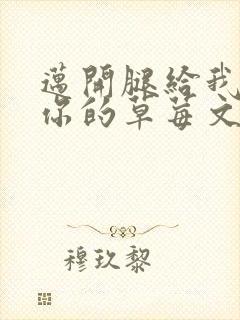 邁開腿給我
你的草莓文
穆玖黎